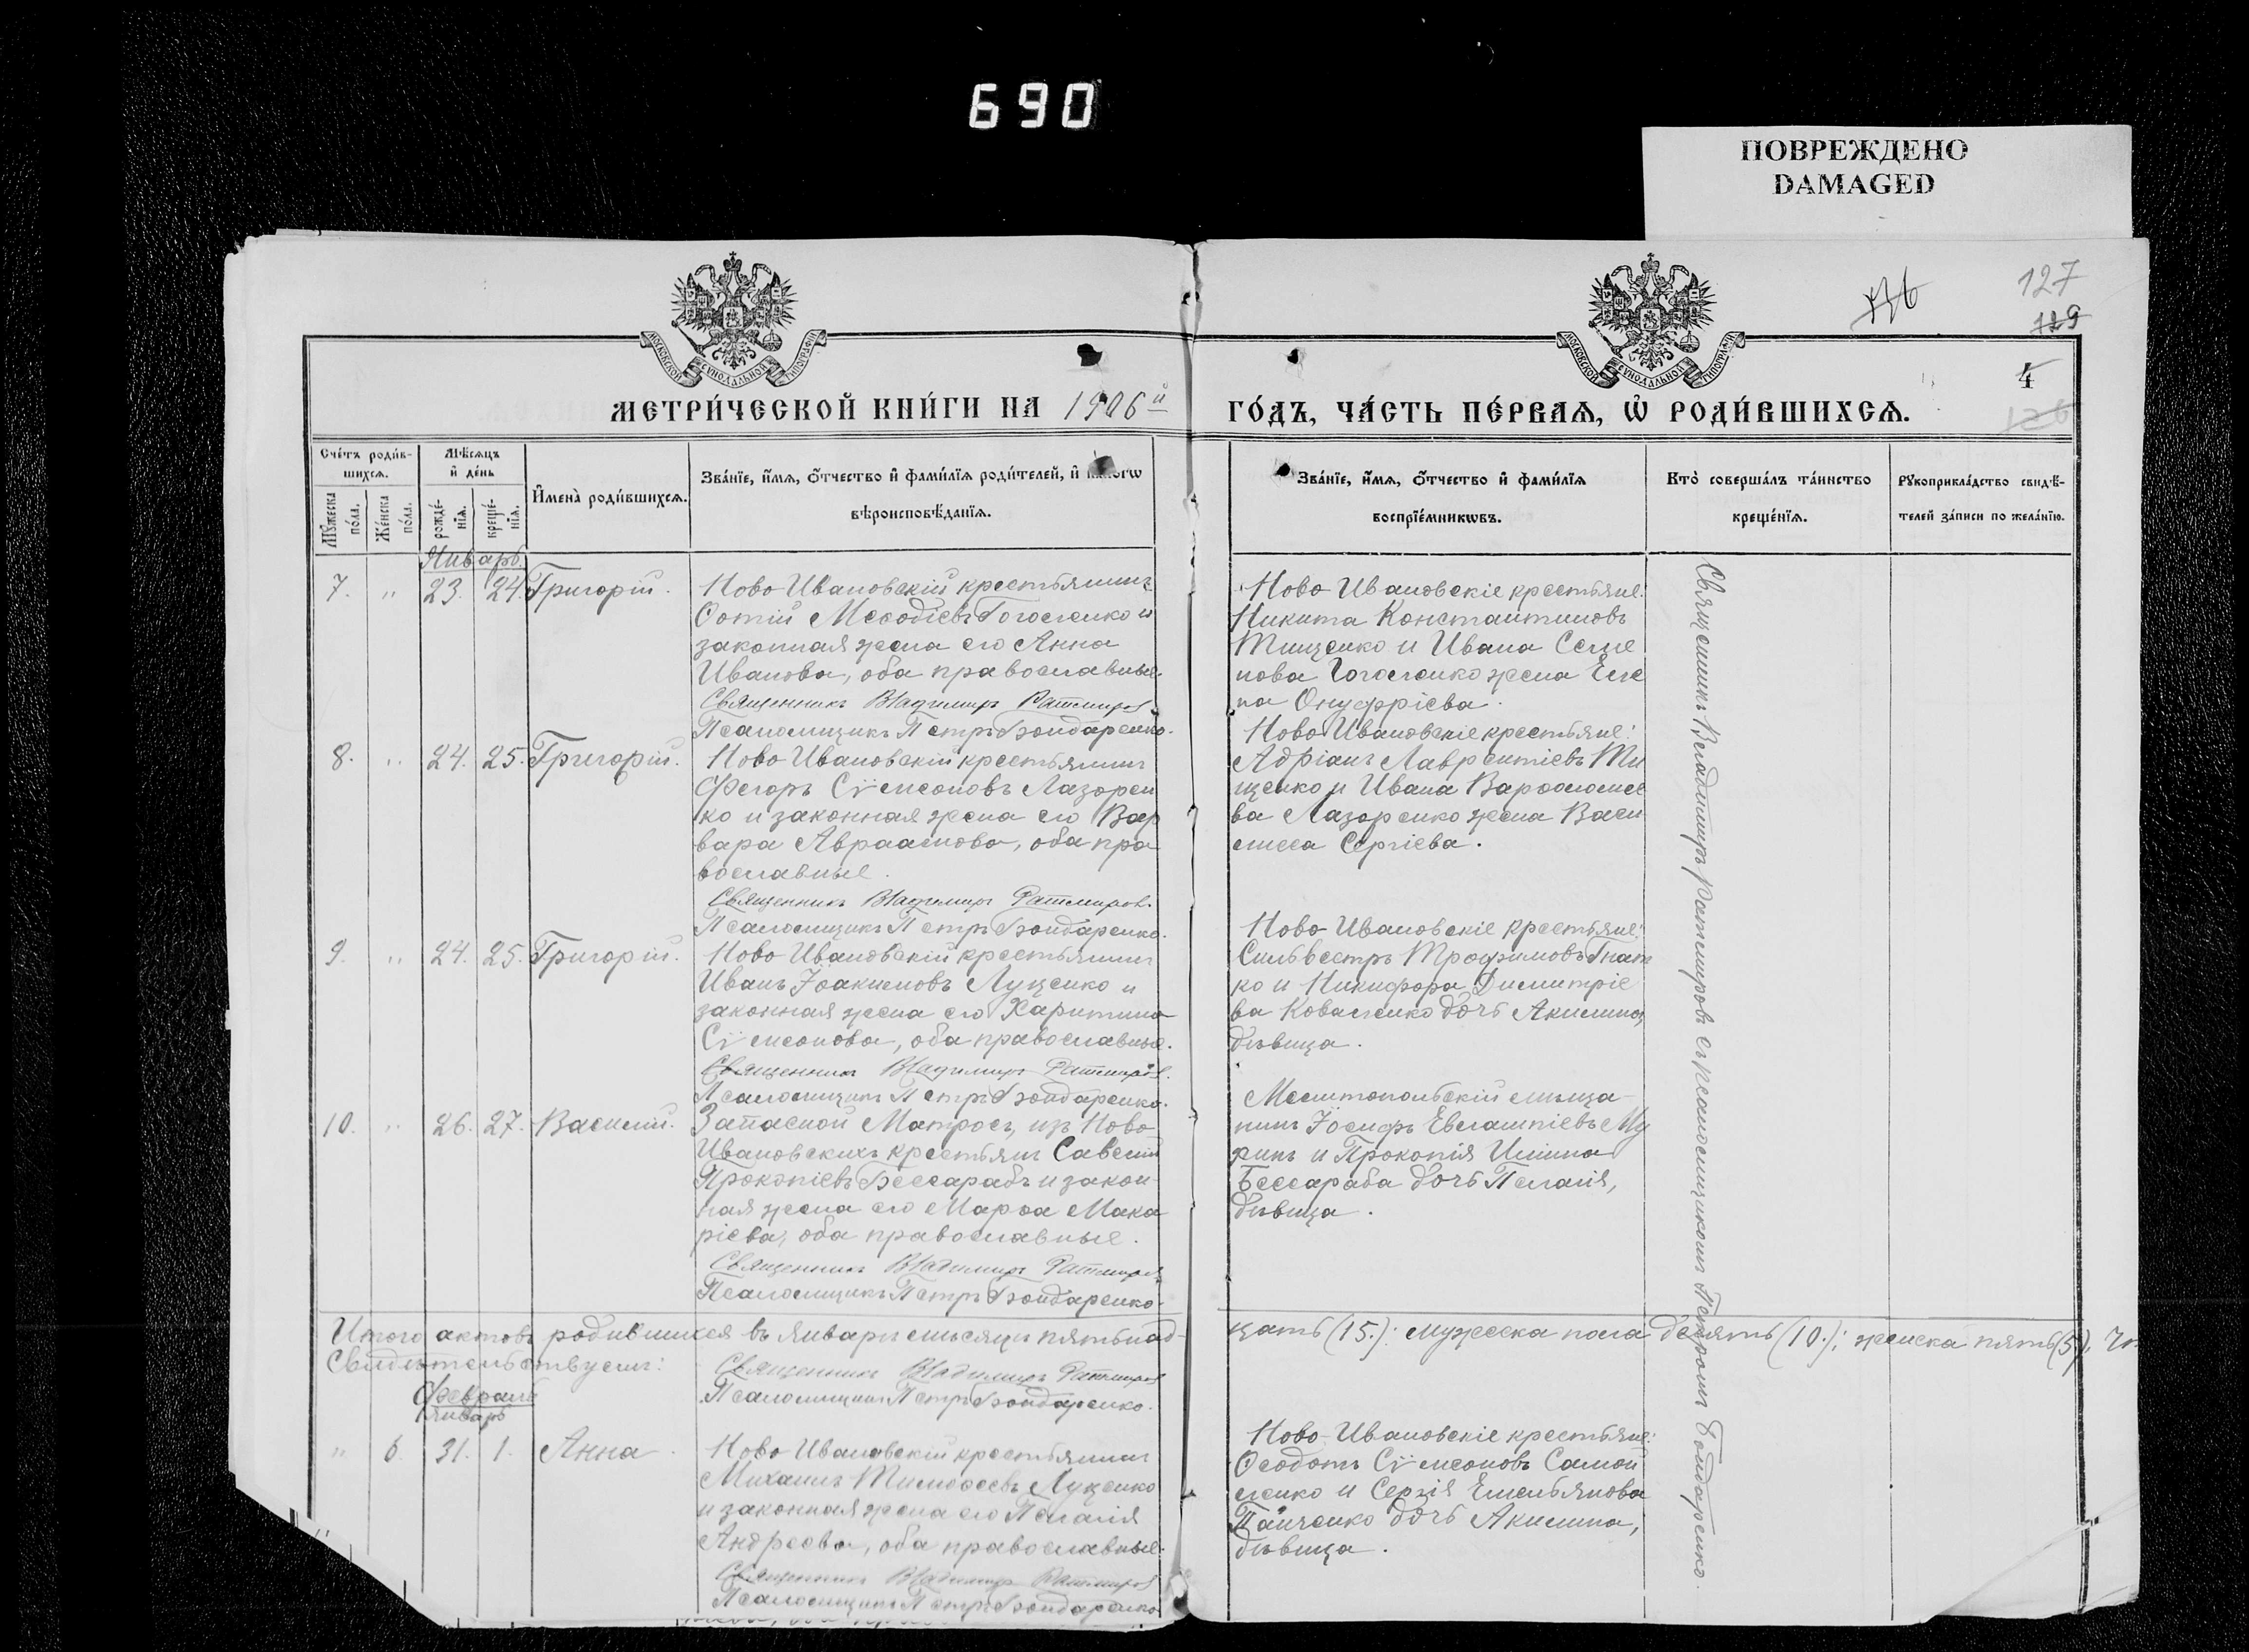 690
ПОВРЕЖДЕНО
DAMAGED
127
129
4
126
МОСКОВСКОЙ СѴНОДАЛЬНОЙ ТИПОГРАФІИ
МОСКОВСКОЙ СѴНОДАЛЬНОЙ ТИПОГРАФІИ
МЕТРИ́ЧЕСКОЙ КНИ́ГИ НА 1906й
ГО́ДЪ, ЧА́СТЬ ПЕ́РВАѦ, Ѡ РОДИ́ВШИХСѦ.
Сче́тъ роди́в-
шихсѧ.
Мꙋ́жеска по́ла.
Же́нска по́ла.
Мѣ́сѧцъ
и де́нь
рожде́-
нїѧ.
креще́-
нїѧ.
Имена̀ роди́вшихсѧ.
Зва́нїе, и́мѧ, о́тчество и фами́лїѧ роди́телей, и
вѣроисповѣ́данїѧ.
Зва́нїе, и́мѧ, о́тчество и фами́лїѧ
воспрїе́мникѡвъ.
Кто̀ соверша́лъ та́инство
креще́нїѧ.
Рꙋкоприкла́дство свидѣ́-
телей за́писи по жела́нїю.
Январь.
7. " 23. 24. Григорій.
Ново-Ивановскій крестьянинъ
Фотій Меѳодіевъ Гоголенко и
законная жена его Анна
Иванова, оба православные.
Священникъ Владимиръ Ратмировъ.
Псаломщикъ Петръ Бондаренко.
Ново-Ивановскіе крестьяне:
Никита Константиновъ
Тищенко и Ивана Семе
нова Гоголенко жена Еле
на Онуфріева.
8. " 24. 25. Григорій.
Ново-Ивановскій крестьянинъ
Ѳедоръ Сѵмеоновъ Лазорен
ко и законная жена его Вар
вара Авраамова, оба пра
вославные.
Священникъ Владимиръ Ратмировъ.
Псаломщикъ Петръ Бондаренко.
Ново-Ивановскіе крестьяне:
Адріанъ Лаврентіевъ Ти
щенко и Ивана Варѳоломее
ва Лазоренко жена Васи
лисса Сергіева.
9. " 24. 25. Григорій.
Ново-Ивановскій крестьянинъ
Иванъ Іоакимовъ Луценко и
законная жена его Харитина
Сѵмеонова, оба православные.
Священникъ Владимиръ Ратмировъ.
Псаломщикъ Петръ Бондаренко.
Ново-Ивановскіе крестьяне:
Сильвестръ Трофимовъ Гнат
ко и Никифора Димитріе
ва Коваленко дочь Акилина,
дѣвица.
10. " 26. 27. Василій.
Запасной Матросъ, изъ Ново-
Ивановскихъ крестьянъ Савелій
Прокопіевъ Бессарабъ и закон
ная жена его Марѳа Мака
ріева, оба православные.
Священникъ Владимиръ Ратмировъ
Псаломщикъ Петръ Бондаренко.
Мелитопольскій мѣща-
нинъ Іосифъ Евлампіевъ Му
ринъ и Прокопія Ильина
Бессараба дочь Пелагія,
дѣвица.
Священникъ Владимиръ Ратмировъ съ псаломщикомъ Петромъ Бондаренко.
Итого актовъ родившихся въ Январѣ мѣсяцѣ пятьнад-
цать (15.): мужеска пола десять (10.); женска пять (5.),
Свидѣтельствуемъ:
Священникъ Владимиръ Ратмировъ
Псаломщикъ Петръ Бондаренко.
Февраль
Январь
" 6. 31. 1. Анна.
Ново-Ивановскій крестьянинъ
Михаилъ Тимоѳеевъ Луценко
и законная жена его Пелагія
Андреева, оба православные.
Священникъ Владимиръ Ратмировъ
Псаломщикъ Петръ Бондаренко
Ново-Ивановскіе крестьяне:
Ѳеодотъ Сѵмеоновъ Самой
ленко и Сергія Емельянова
Панченко дочь Акилина,
дѣвица.